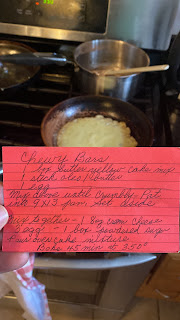 Chewy Bars
1 box Butter yellow cake mix
1 stick oleo/butter
1 egg
Mix above until crumbly. Put
into 9 x 13 pan. Set aside.
Mix together - 1 8oz cream cheese
2 eggs - 1 box powdered sugar
Pour over cake mixture.
Bake 45 min @ 350°